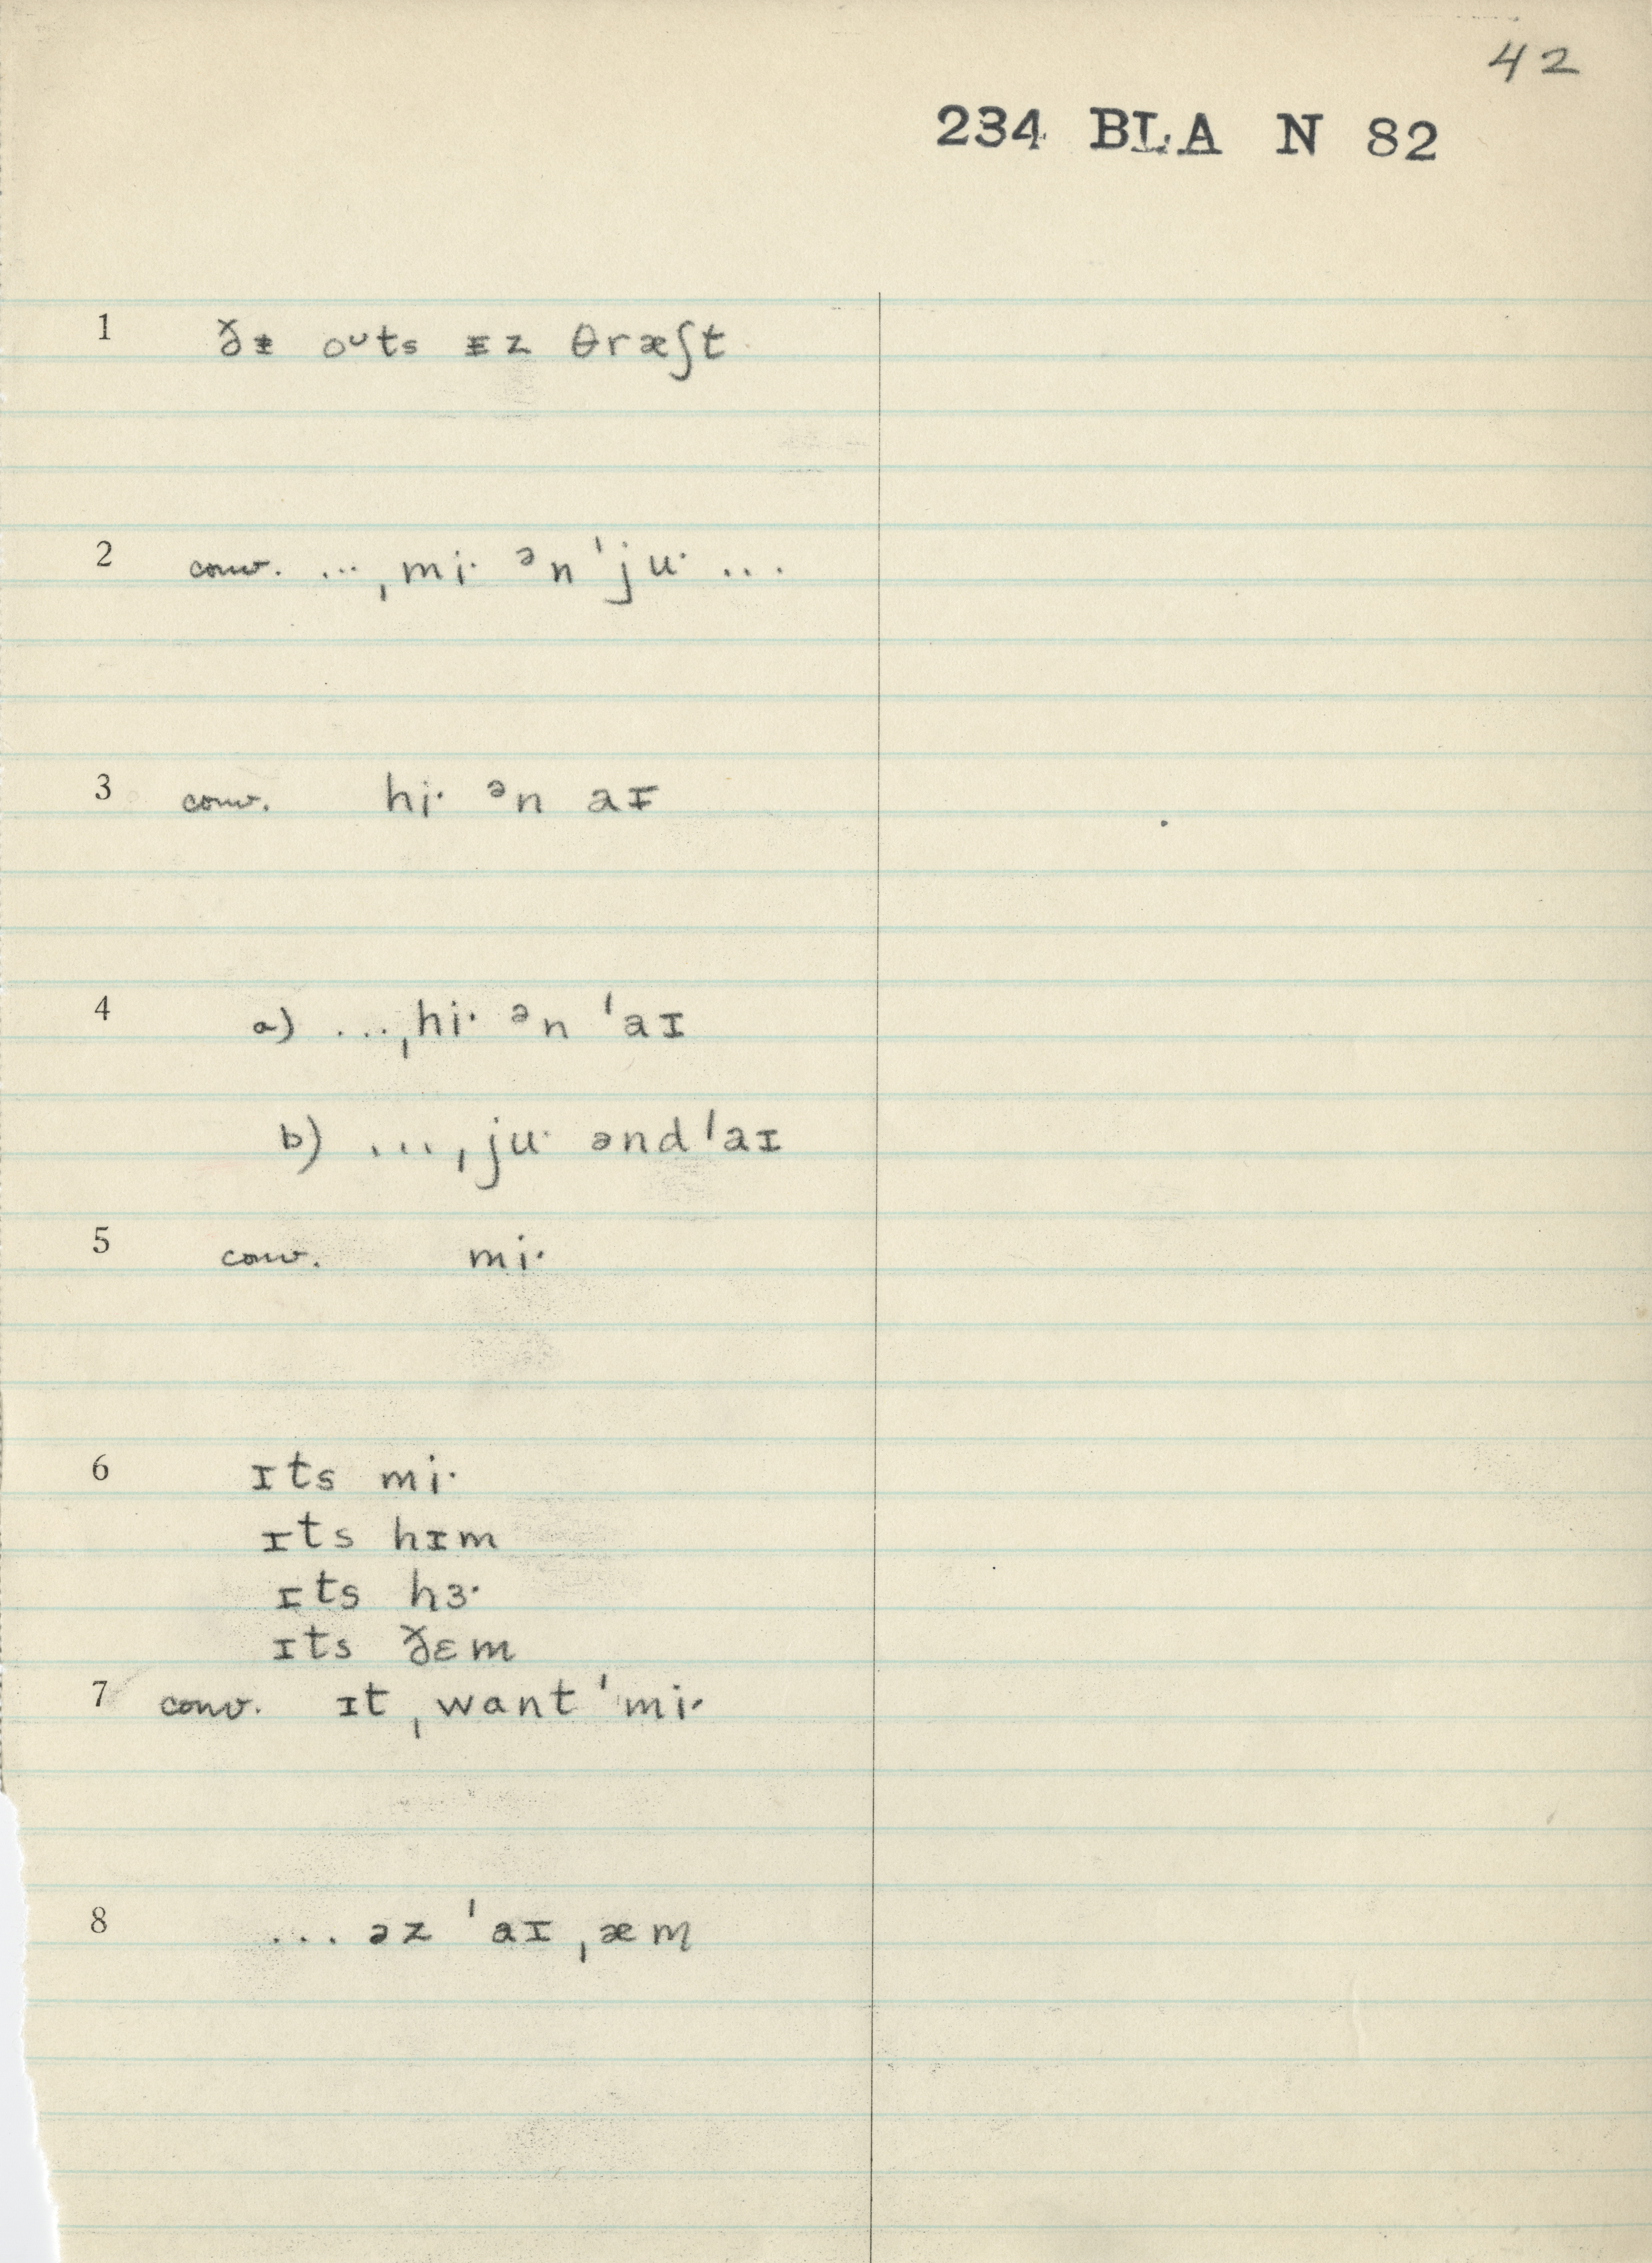 42
234 BLA N 82
1 ðᵻ oᴜts ᵻz θræʃt
2 conv. ...ˌmi· ᵊn ˈju· ...
3 conv. hi· ᵊn aɪ
4 a) ...ˌhi· ᵊn ˈaɪ
b) ...ˌju· ənd ˈaɪ
5 conv. mi·
6 ɪts mi·
ɪts hɪm
ɪts hɜ·
ɪts ðɛm
7 conv. ɪt ˌwant ˈmi·
8 ... əz ˈaɪ ˌæm